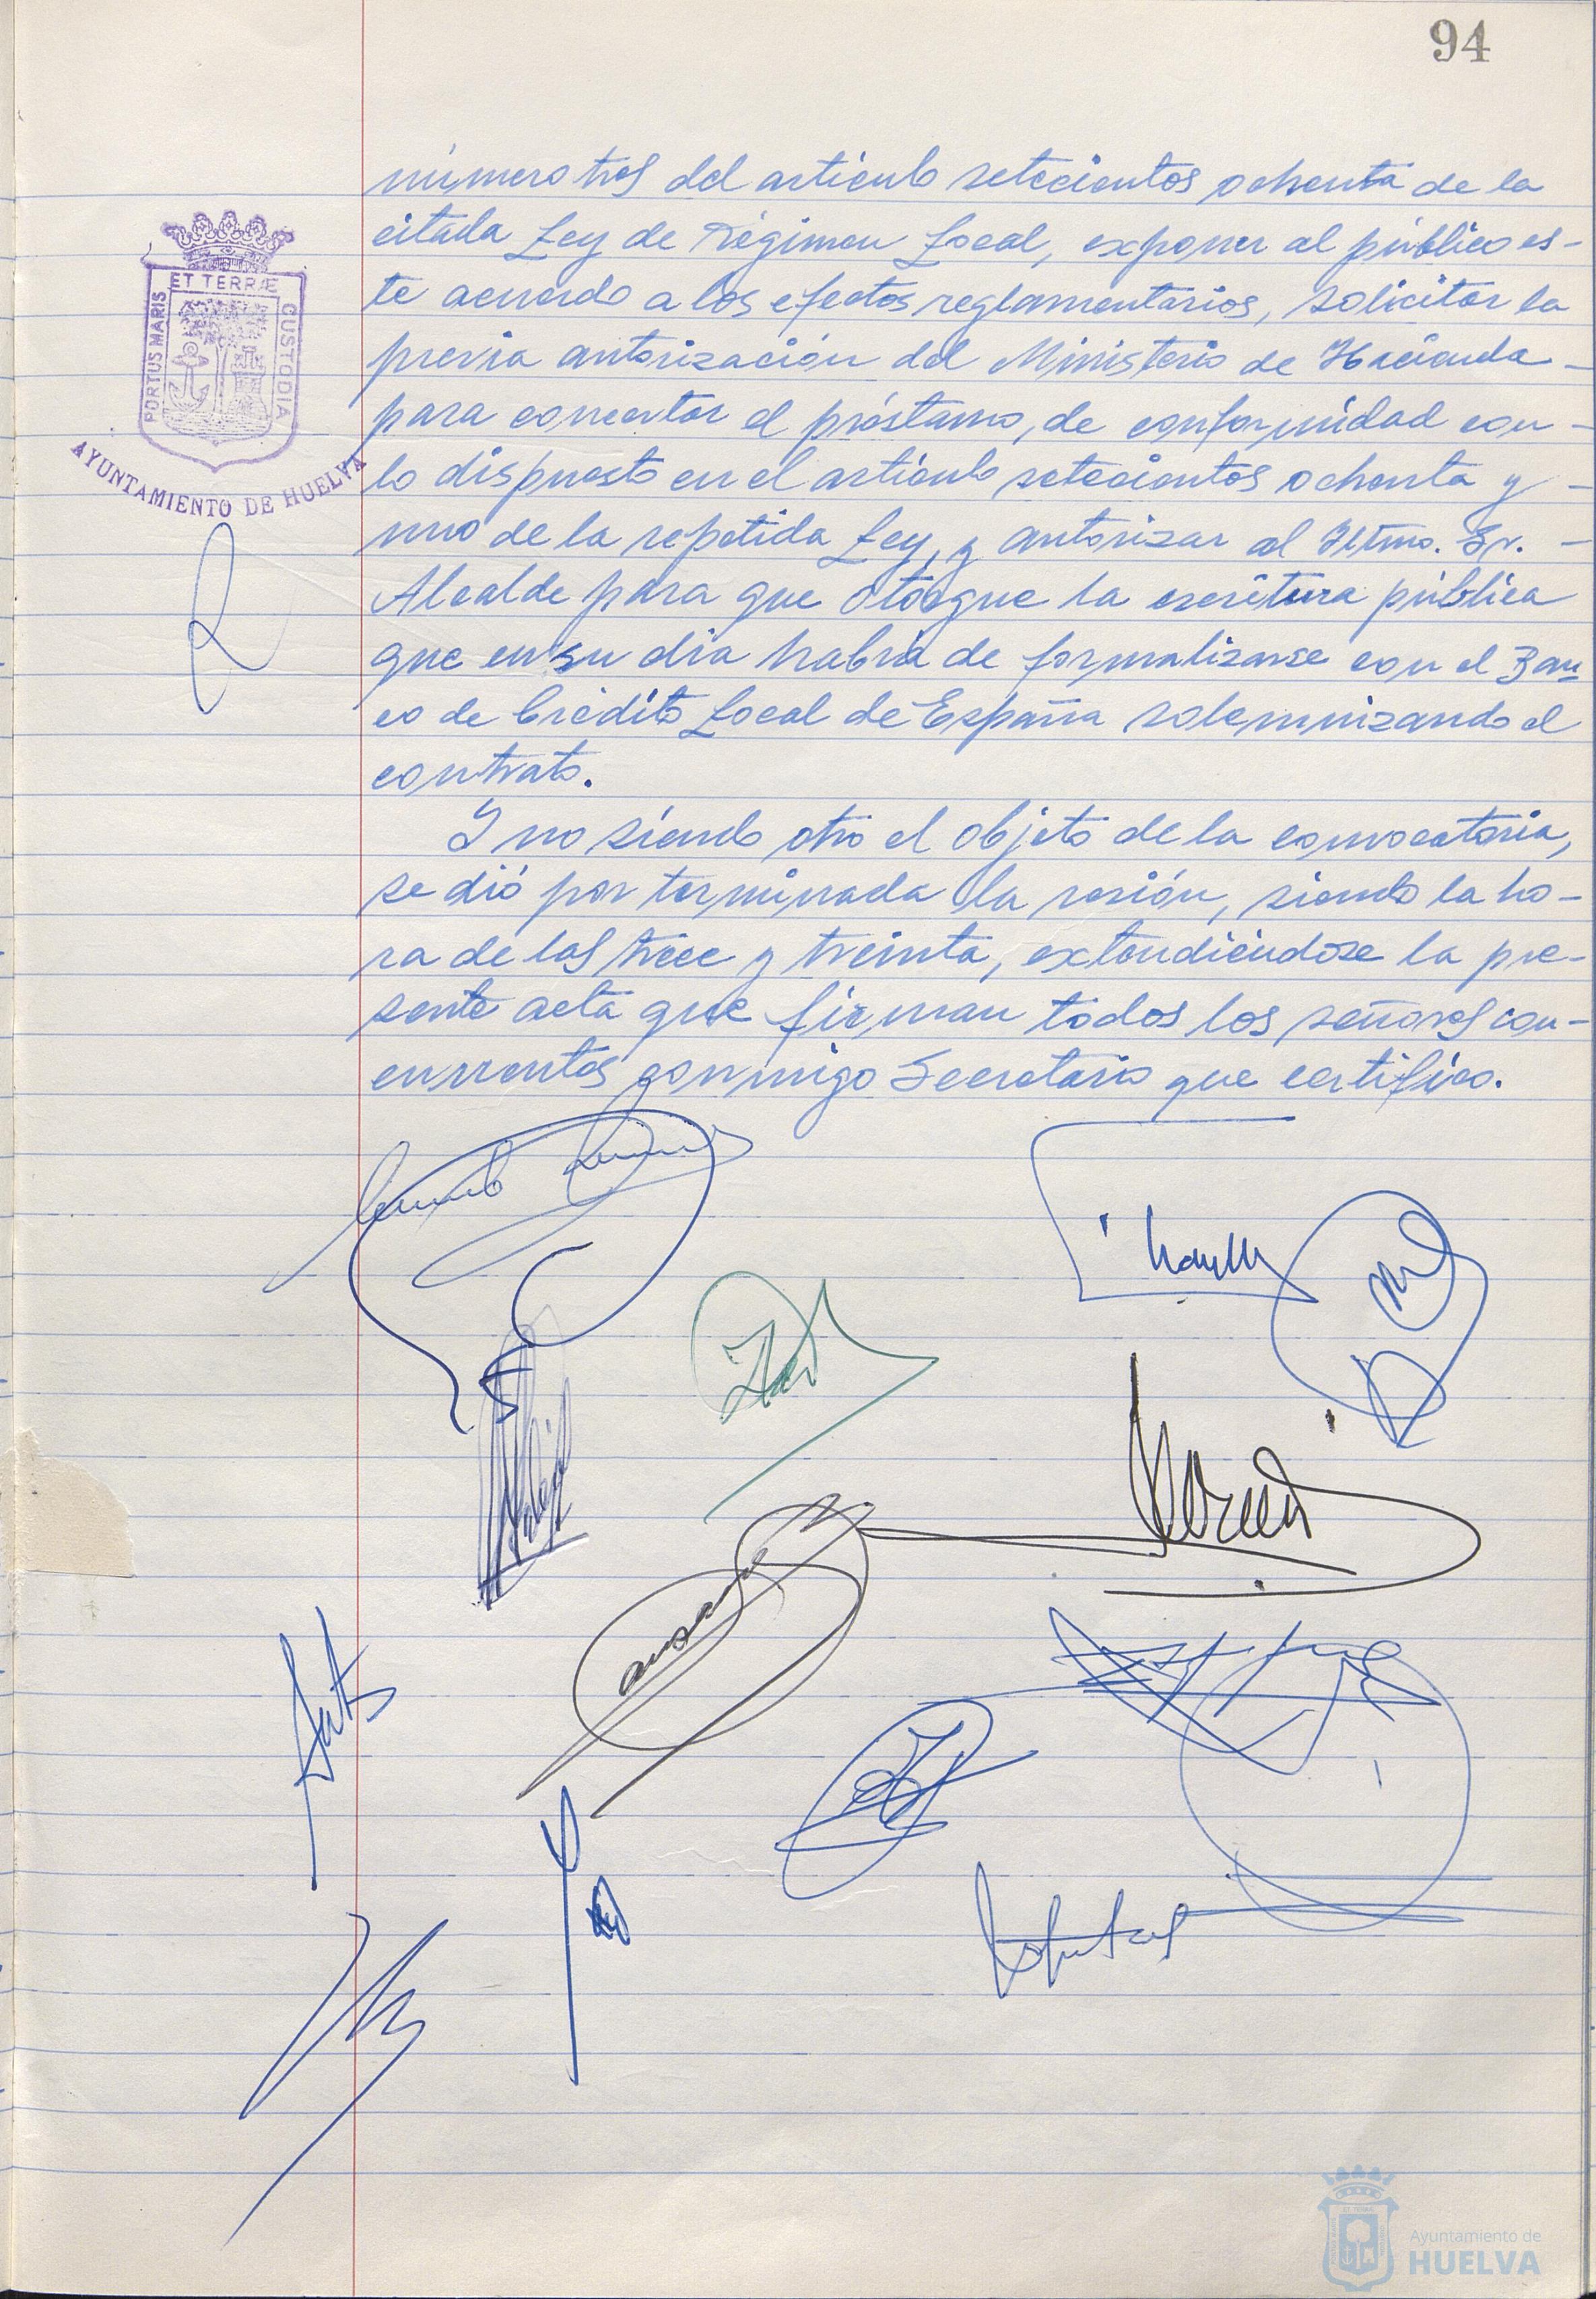 94
número tres del artículo setecientos ochenta de la
citada Ley de Régimen Local, exponer al público es-
te acuerdo a los efectos reglamentarios, solicitar la
previa autorización del Ministerio de Hacienda -
para concertar el préstamo, de conformidad con -
lo dispuesto en el artículo setecientos ochenta y -
uno de la repetida Ley, y autorizar al Iltmo. Sr. -
Alcalde para que otorgue la escritura pública
que en su dia habrá de formalizarse con el Ban-
co de Crédito Local de España solemnizando el
contrato.
Y no siendo otro el objeto de la convocatoria,
se dió por terminada la sesión, siendo la ho-
ra de las trece y treinta, extendiéndose la pre-
sente acta que firman todos los señores con-
currentes conmigo Secretario que certifico.
PORTUS MARIS ET TERRÆ CUSTODIA
AYUNTAMIENTO DE HUELVA
Ayuntamiento de
HUELVA